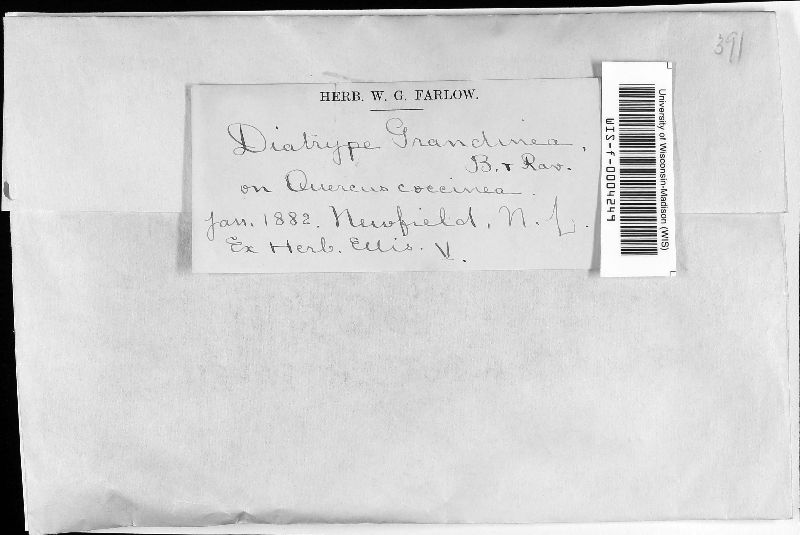 391
HERB. W. G. FARLOW.
Diatrype Grandinea,
B. & Rav.
on Quercus coccinea.
Jan. 1882. Newfield, N. J.
Ex Herb. Ellis. V.
University of Wisconsin-Madison (WIS)
WIS-f-0004249